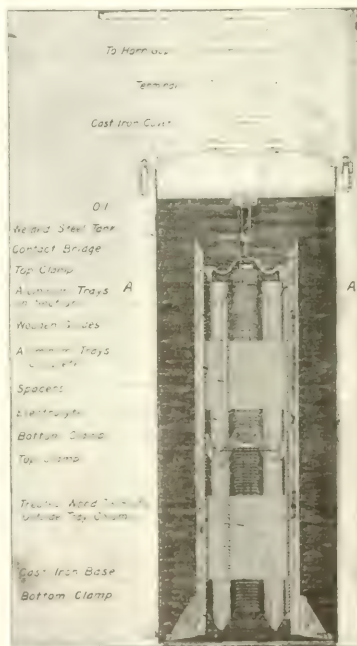 Terminal
Cast Iron Cover
Oil
Welded Steel Tank
Contact Bridge
Top Clamp
A
A
Aluminum Trays
Wooden Guides
Aluminum Trays
Spacers
Electrolyte
Bottom Clamp
Top Clamp
Treated Wood
Outside Tray
Cast Iron Base
Bottom Clamp